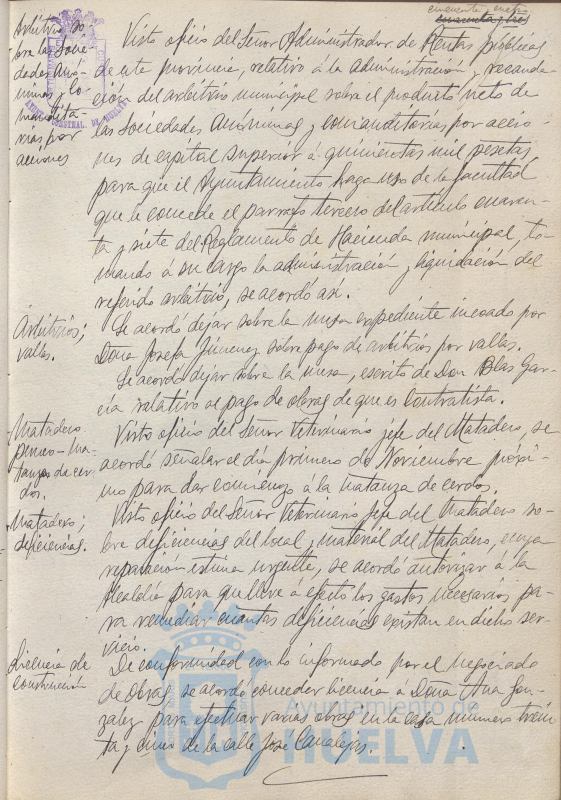 cincuenta y nueve
Arbitrios so-
bre las Socie-
dades Anó-
nimas y co-
manditа-
rias por
acciones
Visto oficio del Señor Administrador de Rentas públicas
de esta provincia, relativo á la administración y recauda-
ción del arbitrio municipal sobre el producto neto de
las Sociedades Anónimas y comanditarias por accio-
nes de capital superior á quinientas mil pesetas
para que el Ayuntamiento haga uso de la facultad
que le concede el párrafo tercero del artículo cuaren-
ta y siete del Reglamento de Hacienda municipal, to-
mando á su cargo la administración y liquidación del
referido arbitrio, se acordó así.
Arbitrios;
vallas.
Se acordó dejar sobre la mesa expediente incoado por
Doña Josefa Jimenez sobre pago de arbitrios por vallas.
Se acordó dejar sobre la mesa, escrito de Don Blas Gar-
cía relativo al pago de obras de que es contratista.
Matadero
ma-
tanza de cer-
dos.
Visto oficio del Señor Veterinario jefe del Matadero, se
acordó señalar el día primero de Noviembre próxi-
mo para dar comienzo á la matanza de cerdos.
Matadero;
deficiencias.
Visto oficio del Señor Veterinario Jefe del Matadero so-
bre deficiencias del local y material del Matadero, cuya
reparación estima urgente, se acordó autorizar á la
Alcaldía para que lleve á efecto los gastos necesarios pa-
ra remediar cuantas deficiencias existan en dicho ser-
vicio.
Licencia de
construcción
De conformidad con lo informado por el negociado
de Obras, se acordó conceder licencia á Doña Ana Gon-
zalez para efectuar varias obras en la casa número trein-
ta y cinco de la calle José Canalejas.
Ayuntamiento de
HUELVA